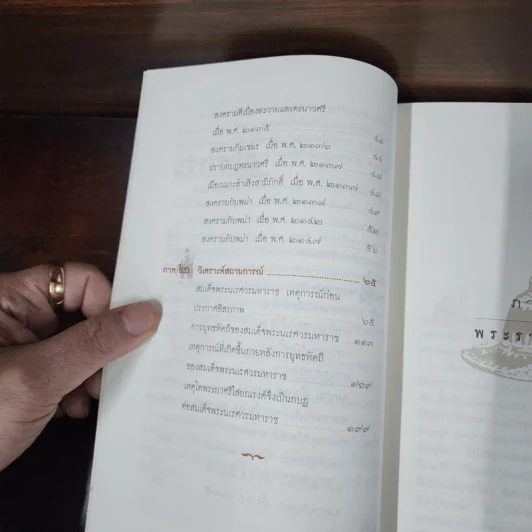 สงครามตีเมืองทะวายและตะนาวศรี
เมื่อ พ.ศ. ๒๑๓๕ ๔๑
สงครามกับเขมร เมื่อ พ.ศ. ๒๑๓๖ ๔๔
ปราบกบฏตะนาวศรี เมื่อ พ.ศ. ๒๑๓๗ ๔๘
เมืองเมาะลำเลิงสามิภักดิ์ เมื่อ พ.ศ. ๒๑๓๗ ๔๘
สงครามกับพม่า เมื่อ พ.ศ. ๒๑๓๘ ๔๙
สงครามกับพม่า เมื่อ พ.ศ. ๒๑๔๒ ๕๒
สงครามกับพม่า เมื่อ พ.ศ. ๒๑๔๗ ๕๖
ภาค วิเคราะห์สถานการณ์ ๖๕
สมเด็จพระนเรศวรมหาราช เหตุการณ์ก่อน
ประกาศอิสรภาพ ๖๕
การยุทธหัตถีของสมเด็จพระนเรศวรมหาราช ๑๑๓
เหตุการณ์ที่เกิดขึ้นภายหลังการยุทธหัตถี
ของสมเด็จพระนเรศวรมหาราช ๑๖๙
เหตุใดพระยาศรีไสยณรงค์จึงเป็นกบฏ
ต่อสมเด็จพระนเรศวรมหาราช ๑๙๙